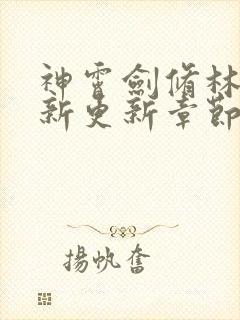 神霄劍脩林
新更新章節
揚帆奮